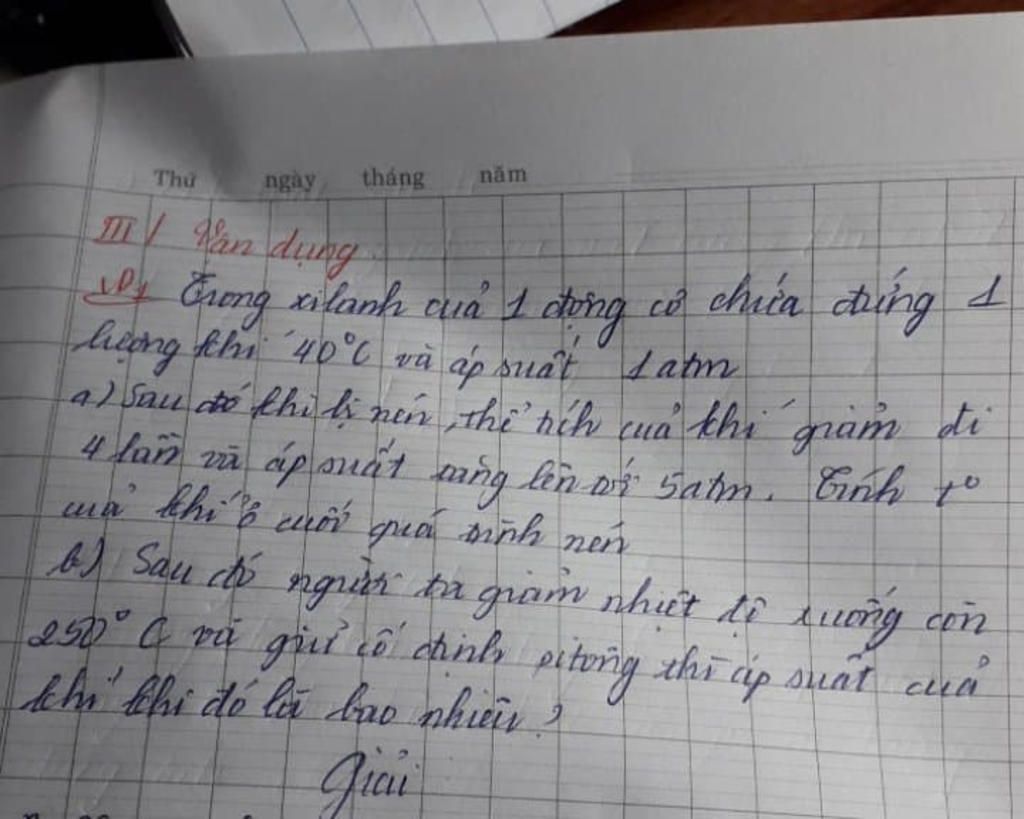 Thứ ngày tháng năm
III/ Vận dụng
VD1 Trong xilanh cuả 1 động cơ chứa đứng 1
lượng khí 40°C và áp suất 1 atm
a) Sau đó khi bị nén, thể tích cuả khí giảm đi
4 lần và áp suất tăng lên tới 5atm. Tính t°
cuả khí ở cuối quá trình nén
b) Sau đó người ta giảm nhiệt độ xuống còn
250°C và giữ cố định pitông thì áp suất cuả
khí khi đó là bao nhiêu?
Giải